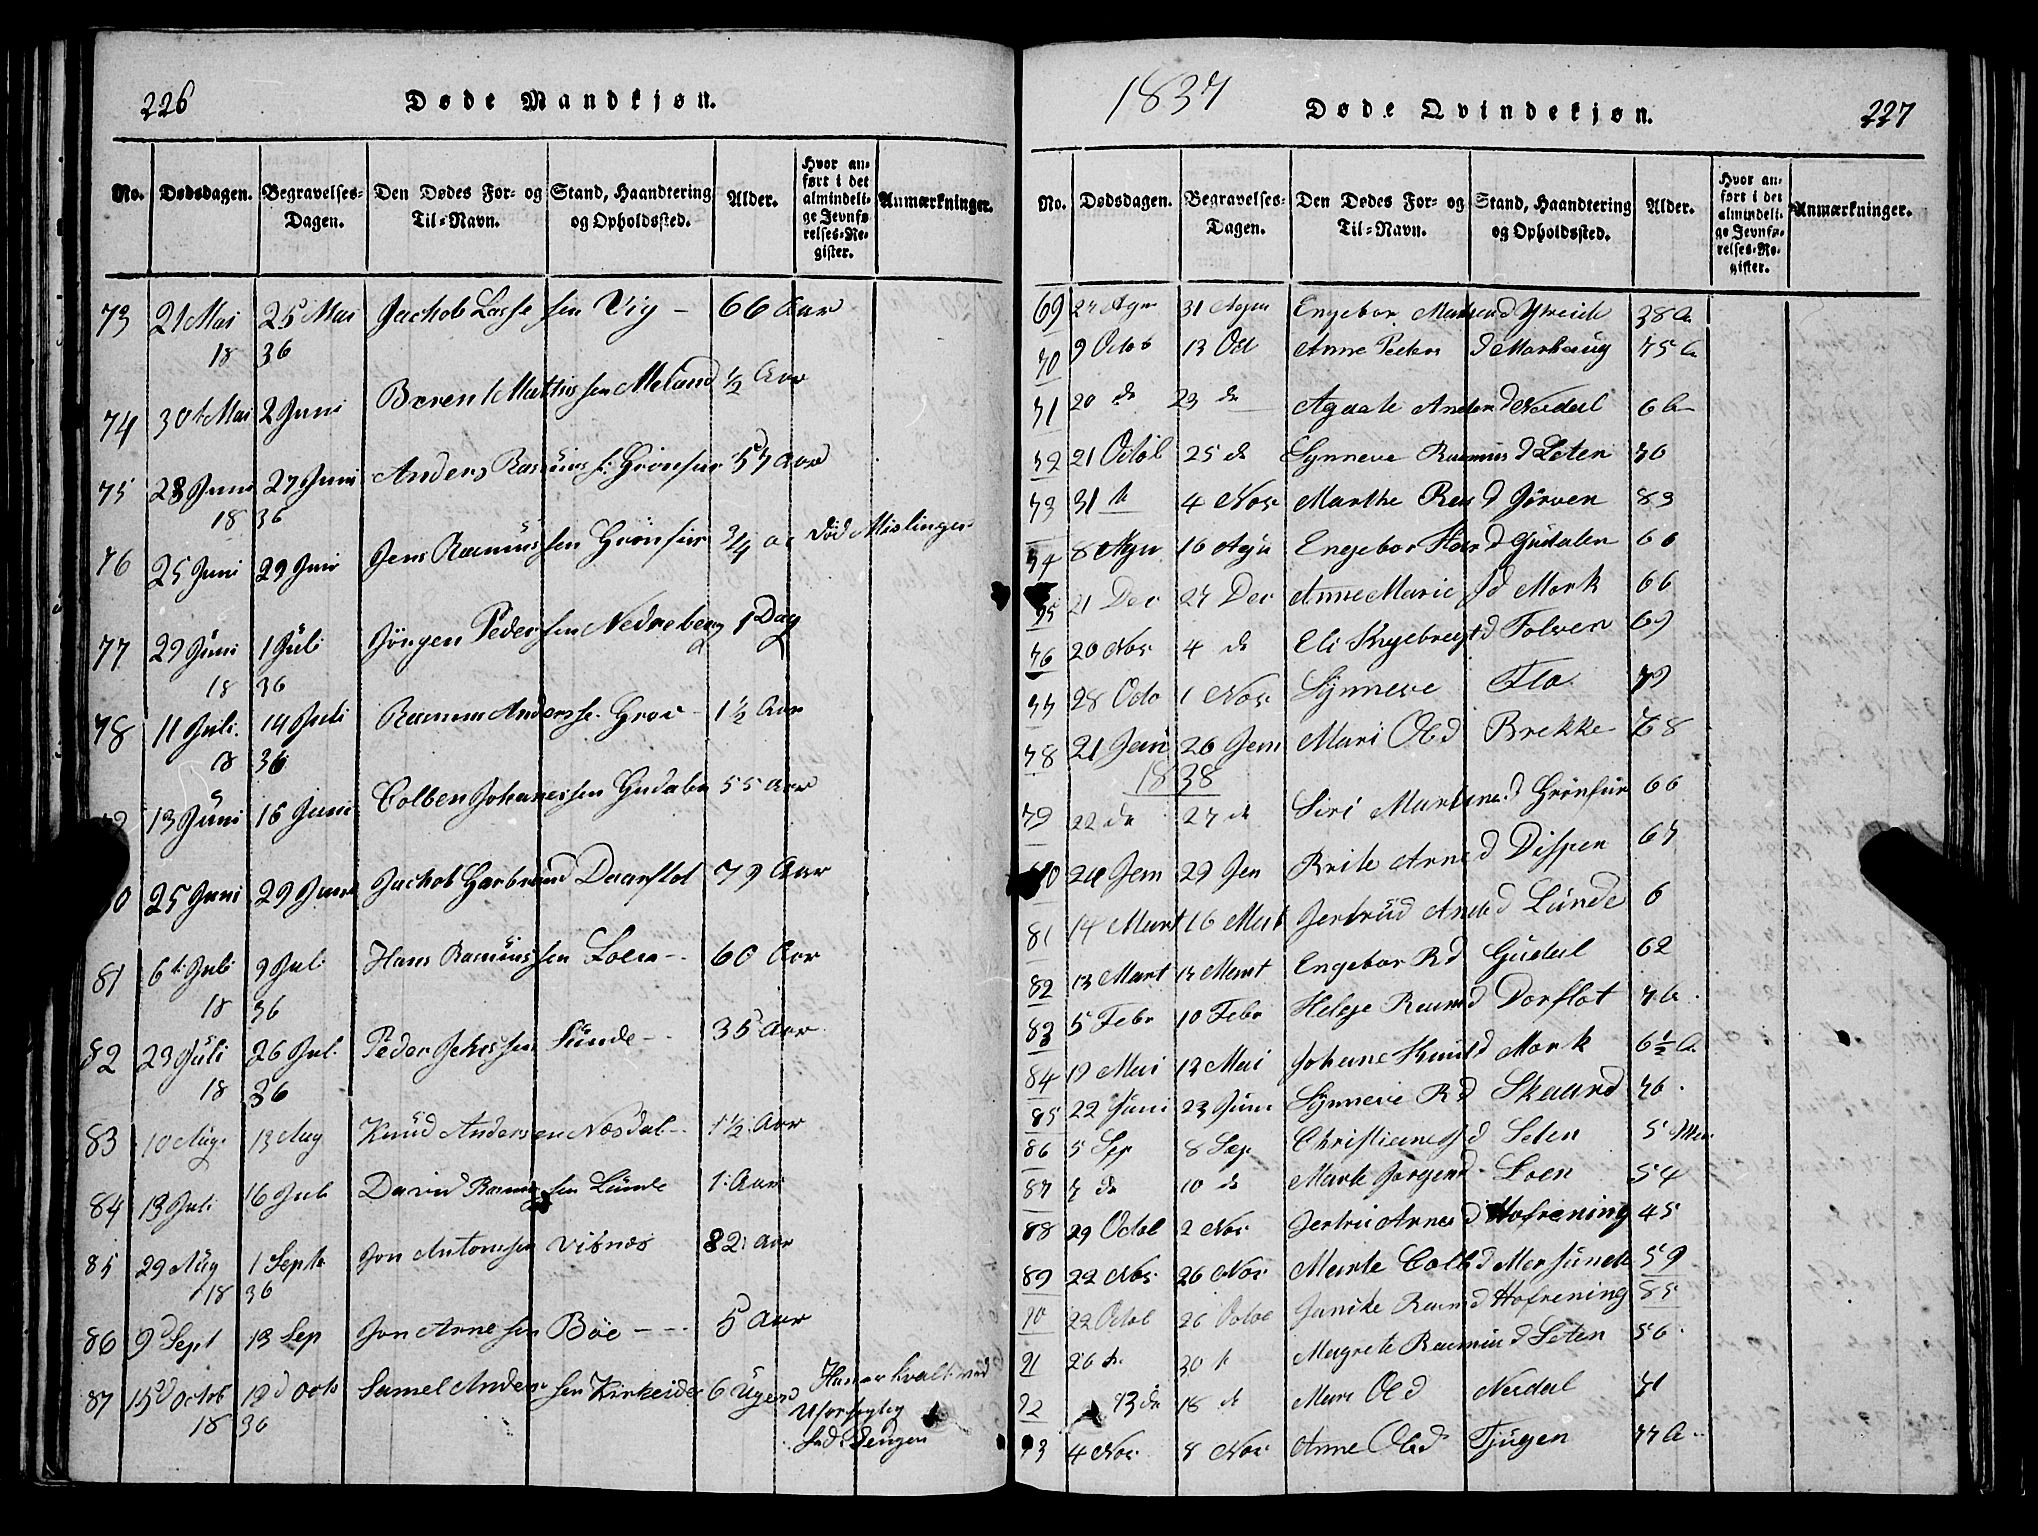 226
Døde Mandkjøn.
No. Dødsdagen. Begravelses-Dagen. Den Dødes For- og Til-Navn. Stand, Haandtering og Opholdssted. Alder. Hvor anført i det almindelige Jevnførelses-Register. Anmærkninger.
73 21 Mai 25 Mai Jachob Lasse sen Vig - 66 Aar
18 36
74 30t Mai 2 Juni Berent Mathis sen Meland ½ Aar
75 23 Juni 27 Juni Anders Rasmus s. 57 Aar
18 36
76 25 Juni 29 Juni Jens Rasmus sen 3/4 Død Mislinger
77 29 Juni 1 Juli Jörgen Peder sen Nedreberg 1 Dag
18 36
78 11 Juli 14 Juli Rasmus Anders se. Grov - 1½ Aar
18 36
13 Juni 16 Juni Colben Johannes sen Gudalen 55 Aar
25 Juni 29 Juni Jachob Gerbrand Daarflot 79 Aar
81 6t Juli 9 Juli Hans Rasmus sen Loen -- 60 Aar
18 36
82 23 Juli 26 Jul. Peder sen Lunde -- 35 Aar
18 36
83 10 Aug. 13 Aug Knud Anders en Næsdal -- 1½ Aar
84 13 Juli 16 Juli David Rasmu sen Lunde 1. Aar
85 29 Aug 1 Septb Jon Antones sen Visnæs 82 Aar
18 36
86 9d Sept 13 Sep Jon Arne sen Böe --- 5 Aar
87 15d Octob 19d Octo Samel Ander sen Kirkeide 6 Uger
Han er kvalt ved
Uforsigtig
18 36
i Sengen
1837
Døde Qvindekjøn.
227
No. Dødsdagen. Begravelses-Dagen. Den Dødes For- og Til-Navn. Stand, Haandtering og Opholdssted. Alder. Hvor anført i det almindelige Jevnførelses-Register. Anmærkninger.
69 27 Agu 31 Agu Engebor d Ytreeide 38 A
70 9 Octob 13 Oct Anne Peders d Markaug 75 A
71 20 d 23 d Agaate Anders d Nesdal 6 A
72 21 Octob 25 d Synneve Rasmus d Seten 70
73 31 4 Nov Marthe Ras d Jörven 83
74 8 Agu 16 Agu Engebor d Gudalen 60
75 21 Dec 27 Dec Anne Marie d Mork 66
76 20 Nov 4 d Eli d Tolven 69
77 28 Octo 1 Nov Synneve Flo 79
78 21 Jan 26 Jan Mari Ole d Brekke 68
1838
79 22 d 27 d Siri Martines d 66
24 Jan 29 Jan Brite Arne d Dispen 67
81 14 Mart 16 Mart Jertrud d Lunde 6
82 13 Mart Mart Engebor R d Gudal 62
83 5 Febr 10 Febr Helge Rasm d Dorflot
84 19 Mai Mai Johane Knut d Mork 6½ A
85 22 Juni 23 Juni Synneve R d Skaard 76
86 5 Sep 8 Sep Christiane d Seten 5
87 7 d 10 d Marte Jorgen d Loen 54
88 29 Octob 2 Nov Jertrud Arnes d Hofrening 45
89 22 Nov 26 Nov Marte Colb d 59
90 22 Octob 26 Octob Janike Rasm d Hofrening 85
91 26 30 Magrete Rasmus d Seten 56
92 13 d 18 d Mari Ole d Nesdal 71
93 4 Nov 8 Nov Anne Ole d Tjugen 77 A